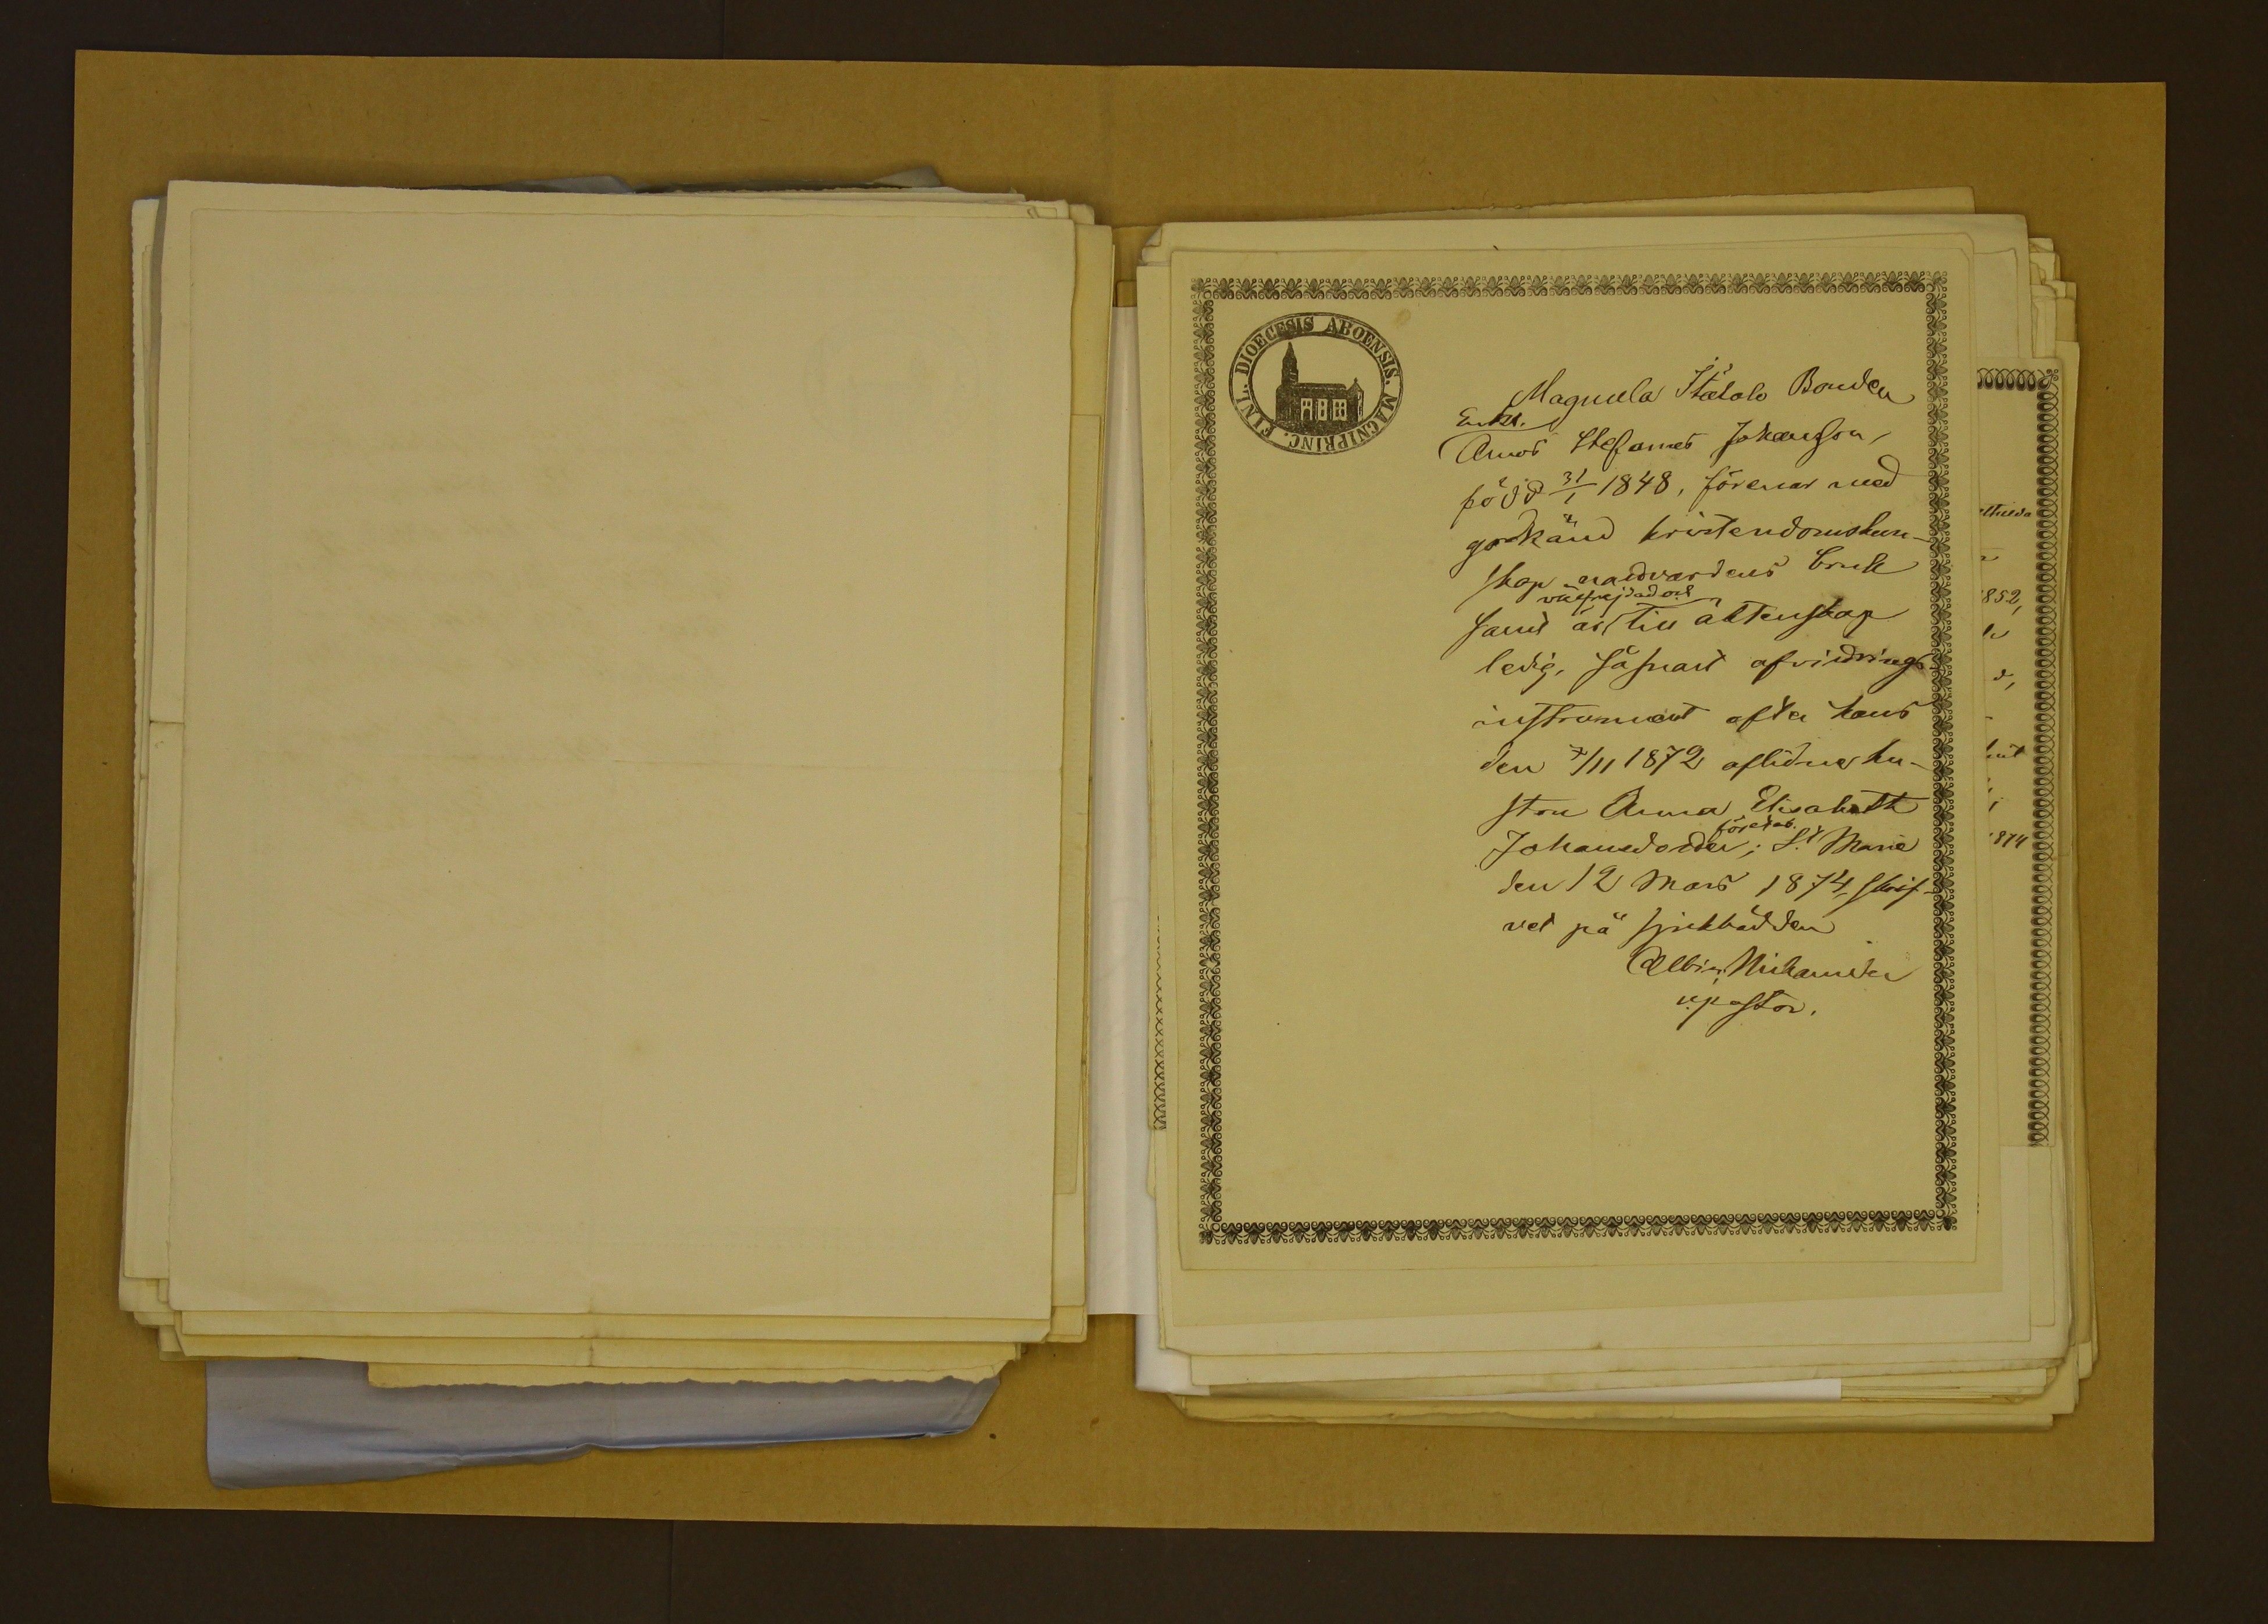 DIOECESIS ABOENSIS. MAGNIPRINC. FINL.
Magnula Itätalo Bonden
Enkl.
Amos Stefanus Johansson,
född 31/1 1848, förenar med
godkänd kristendomskun-
skap nardvardens bruk
välfrejdad och
samt är till äktenskap
ledig, såsnart afvidrings
instrument efter hans
den 7/11 1872 aflidna hu-
stru Anna Elisabeth
företes.
Johansdotter; St Marie
den 12 Mars 1874, skrif-
vet på sjukbädden
Albin
v. pastor.
1852,
1874